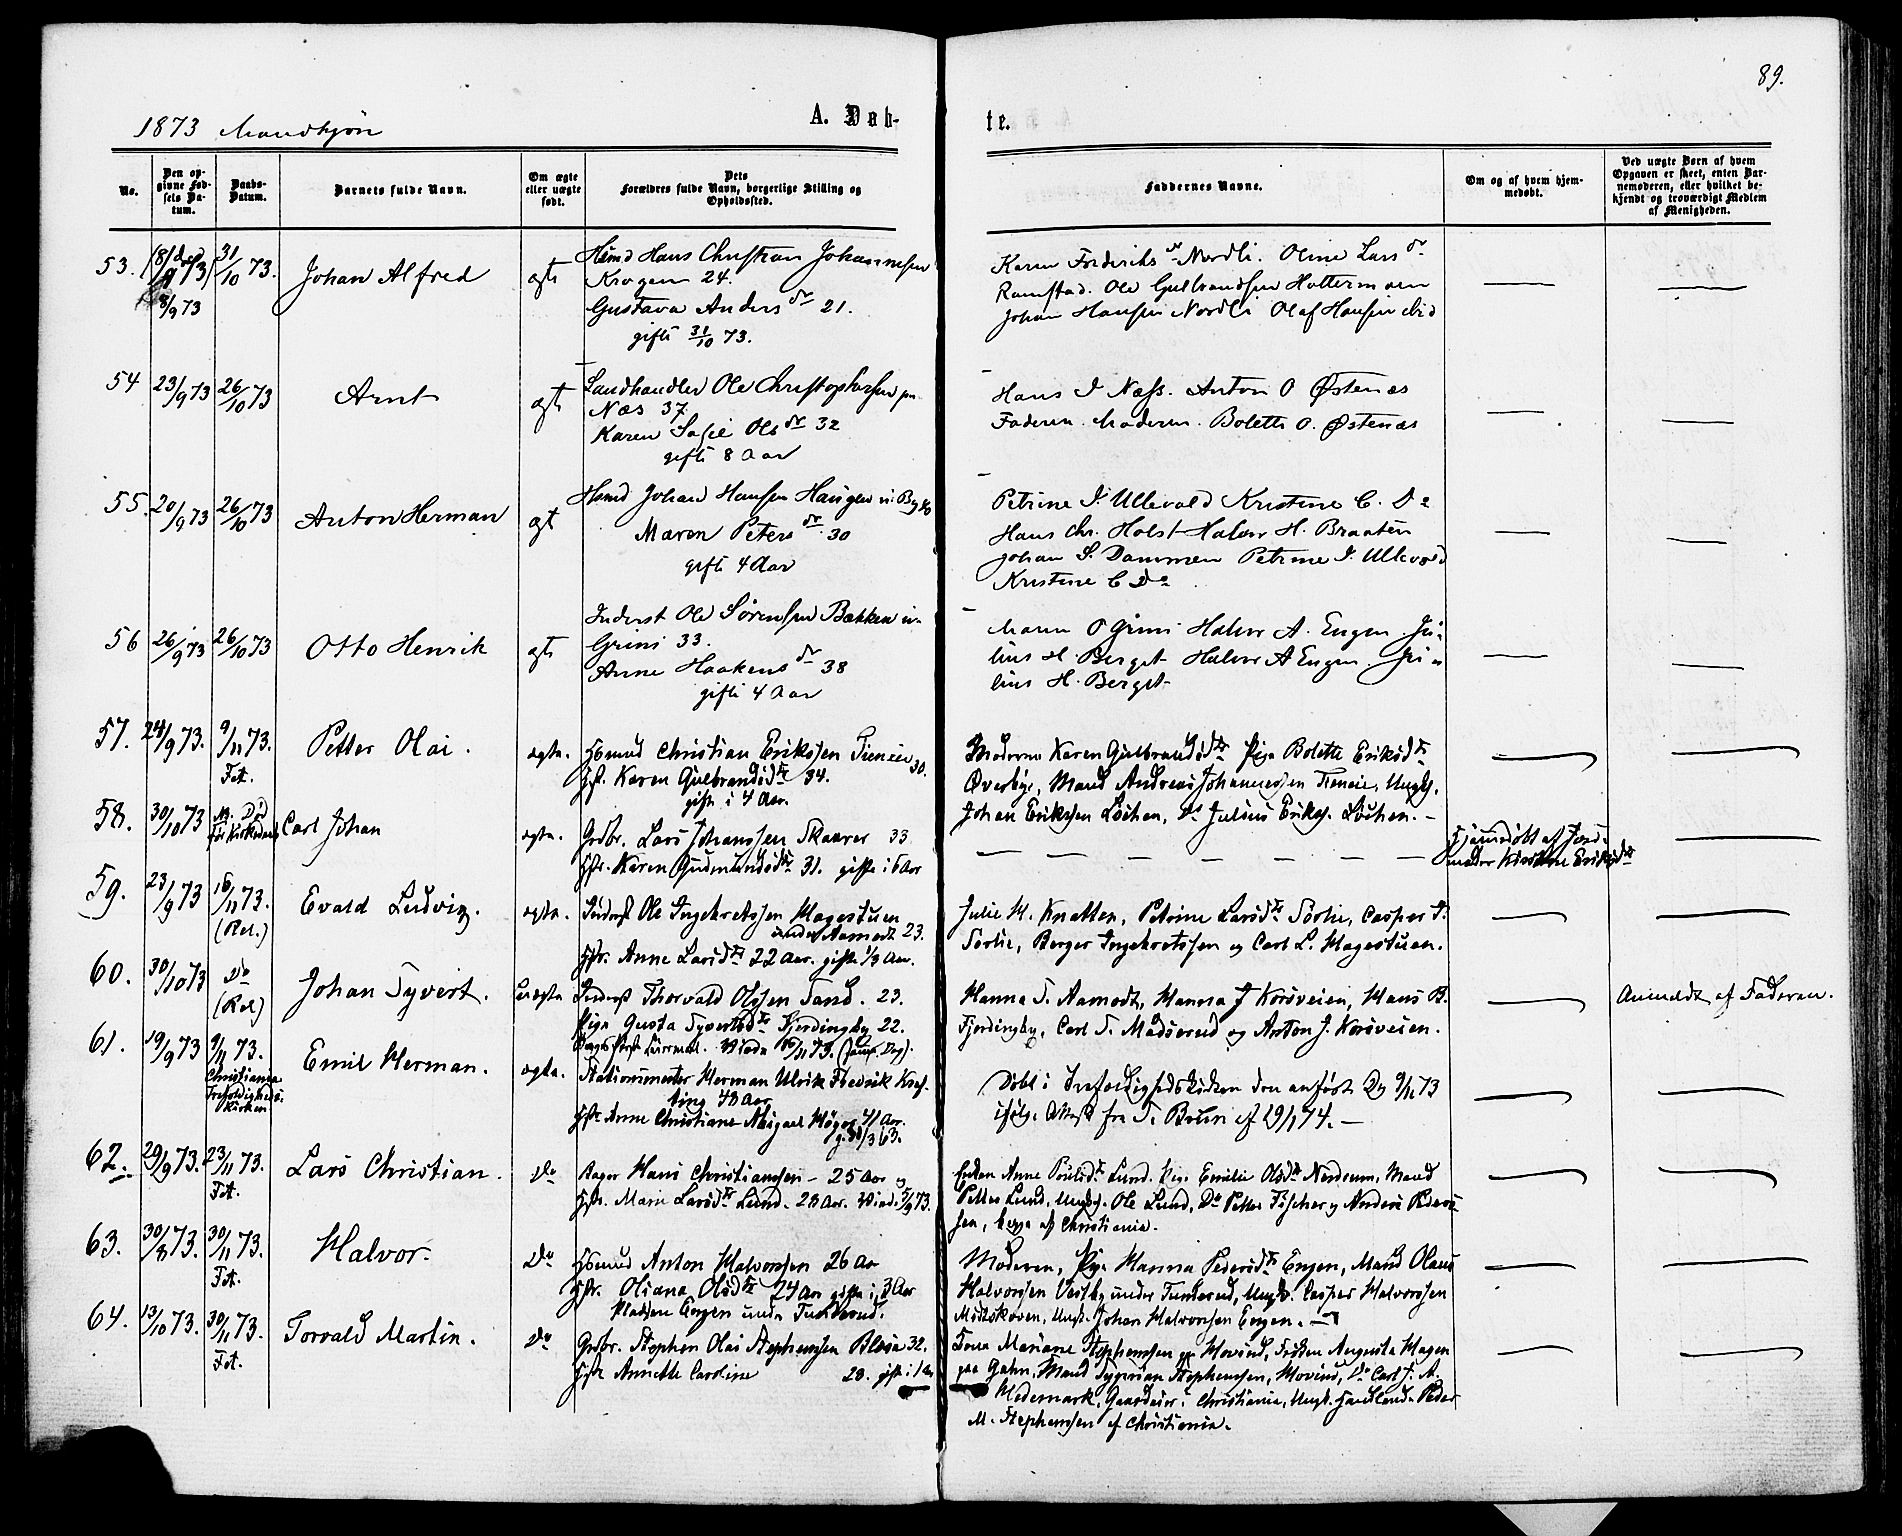 89.
1873 Mandkjøn
A. Døb-
te.
No.
Den op-
givne Fød-
sels Da-
tum.
Daabs-
Datum.
Barnets fulde Navn.
Om ægte
eller uægte
født.
Dets
Forældres fulde Navn, borgerlige Stilling og
Opholdssted.
Faddernes Navne.
Om og af hvem hjem-
medøbt.
Ved uægte Børn af hvem
Opgaven er skeet, enten Bar-
nemoderen, eller hvilket be-
kjendt og troværdigt Medlem
af Menigheden.
53.
8/9 73
31/10 73.
Johan Alfred
ægte
Hsmd Hans Christian Johannesen
Krogen 24.
Gustava Anders dr 21.
gifte 31/10 73.
Karen Frederiks dr Nordli. Oline Lars dr
Ramstad. Ole Gulbrandsen
Johan Hansen Nordli Olaf Hansen ibid
54
23/9 73
26/10 73
Arnt
ægte
Landhandler Ole Christophersen
Næs 37
Karen Sofie Ols dr 32
gifte 8 Aar
Hans I Næss. Anton O Østenæs
Faderen. Moderen. Bolette O. Østenæs
55.
20/9 73
26/10 73
Anton Herman
ægt
Hsmd Johan Hansen Haugen
Maren Peters dr 30
gifte 4 Aar
Petrine I. Ullevold Kristine C. Do
Hans Chr. Holst Halvor H. Braaten
Johan S. Dammen Petrine I. Ullevold
Kristine C Do
56
26/9 73
26/10 73
Otto Henrik
ægte
Inderst Ole Sørensen Bækken
Grini 33.
Anne Haakens dr 38
gifte 4 Aar
Maren O Grini Halvor A. Engen. Ju-
lius H. Berget Halvor A Engen. Ju-
lius H. Berget
57.
24/9 73.
9/11 73.
Fet.
Petter Olai.
ægte.
Hsmnd Christian Erikssen Tieneie 30.
Hst. Karen Gulbrandsd tr 34.
gifte i 4 Aar.
Moderen Karen Gulbrandsd tr Pige Bolette Eriksd tr
Øverbye, Mand Andreas Johannessen Tieneie, Ungk.
Johan Erikssen Løchen, Do Julius Eriks. Løchen.
58.
30/10 73
Carl Johan
ægte.
Grdbr. Lars Johanssen Skaarer 33
Hstr. Karen Gudmundsd tr 31. gifte i 6 Aar
Hjemmedøbt af Jord-
moder Kirstine Eriksd tr
59.
23/9 73
16/11 73.
(Røl.)
Evald Ludvig.
ægte.
Inderst Ole Ingebretssen Hagestuen
under Aamodt 23.
Hstr. Anne Larsd tr 22 Aar. gifte 1/3 Aar.
Julie M. Knatten, Petrine Larsd tr Sørlie, Casper T.
Sørlie, Berger Ingebretssen og Carl L. Hagestuen.
60.
30/10 73
Do
(Røl.)
Johan Syvert.
Uægte
Inderst Thorvald Olssen Sand. 23.
Pige Gusta Syvertsd tr Fjerdingby 22.
Hanna T. Aamodt, Hanna J Korsveien, Hans B.
Fjerdingby, Carl T. Madserud og Anton J. Korsveien.
Anmeldt af Faderen.
61.
19/9 73
9/11 73.
Christiania
Trefoldigheds-
Kirken
Emil Herman.
ægte.
Stationsmester Herman Ulrik Fredrik
48 Aar
Hstr. Anne Christiane Abigael Høyer 41 Aar.
Døbt i Trefoldighedskirken den anførte Dg 9/11 73
ifølge Attest fra T. Bruun af 29/1 74.
62.
29/9 73.
23/11 73.
Fet.
Lars Christian.
Do
Bager Hans Christianssen 25 Aar og
Hstr. Marie Larsd tr Lund. 28 Aar. Viede 5/9 73.
Enken Anne Poulsd tr Lund. Pige Emilie Olsd tr Nordrum, Mand
Petter Lund, Ungk. Ole Lund, Do Petter Fischer og Anders Peders-
sen, begge af Christiania.
63.
30/8 73.
30/11 73.
Fet.
Halvor.
Do
Hsmnd Anton Halvorssen 26 Aar
Hstr. Oliana Olsd tr 24 Aar gifte i 3 Aar
Pladsen Engen under Tunderud.
Moderen, Pige Hanna Pedersd tr Engen, Mand Olaus
Halvorssen Vestby under Tunderud, Ungk. Casper Halvorssen
Midtskoven, Ungk. Johan Halvorssen Engen.
64.
13/10 73.
30/11 73.
Fet.
Torvald Martin.
Do
Grdbr. Stephen Olai Stephenssen 32.
Hstr Annette Caroline 28. gifte i 1 Aar
Frue Mariane Stephenssen paa Hovind, Frøken Augusta Hagen
paa Gahn, Mand Stephenssen, Hovind, Do Carl J. A.
Hedemark, Gaardeier i Christiania, Ungk. Peder
M. Stephenssen af Christiania.